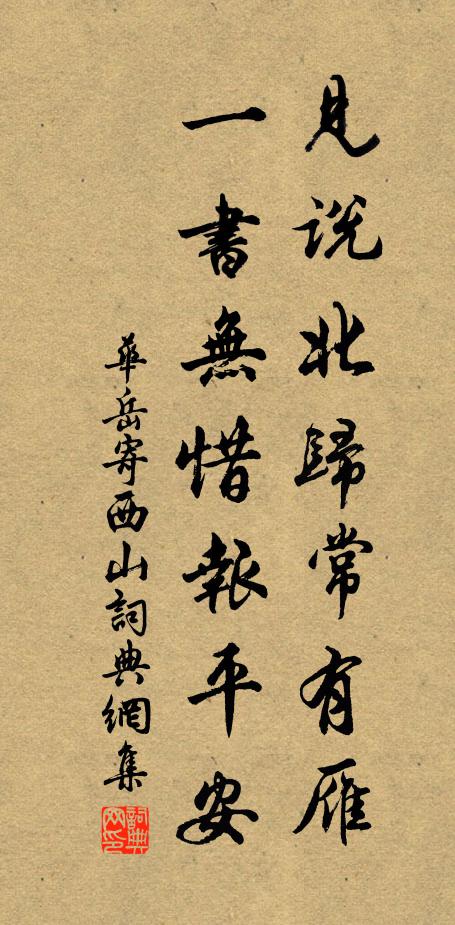 見說北歸常有雁
一書無惜報平安
華岳寄西山詞典網集
詞典網印